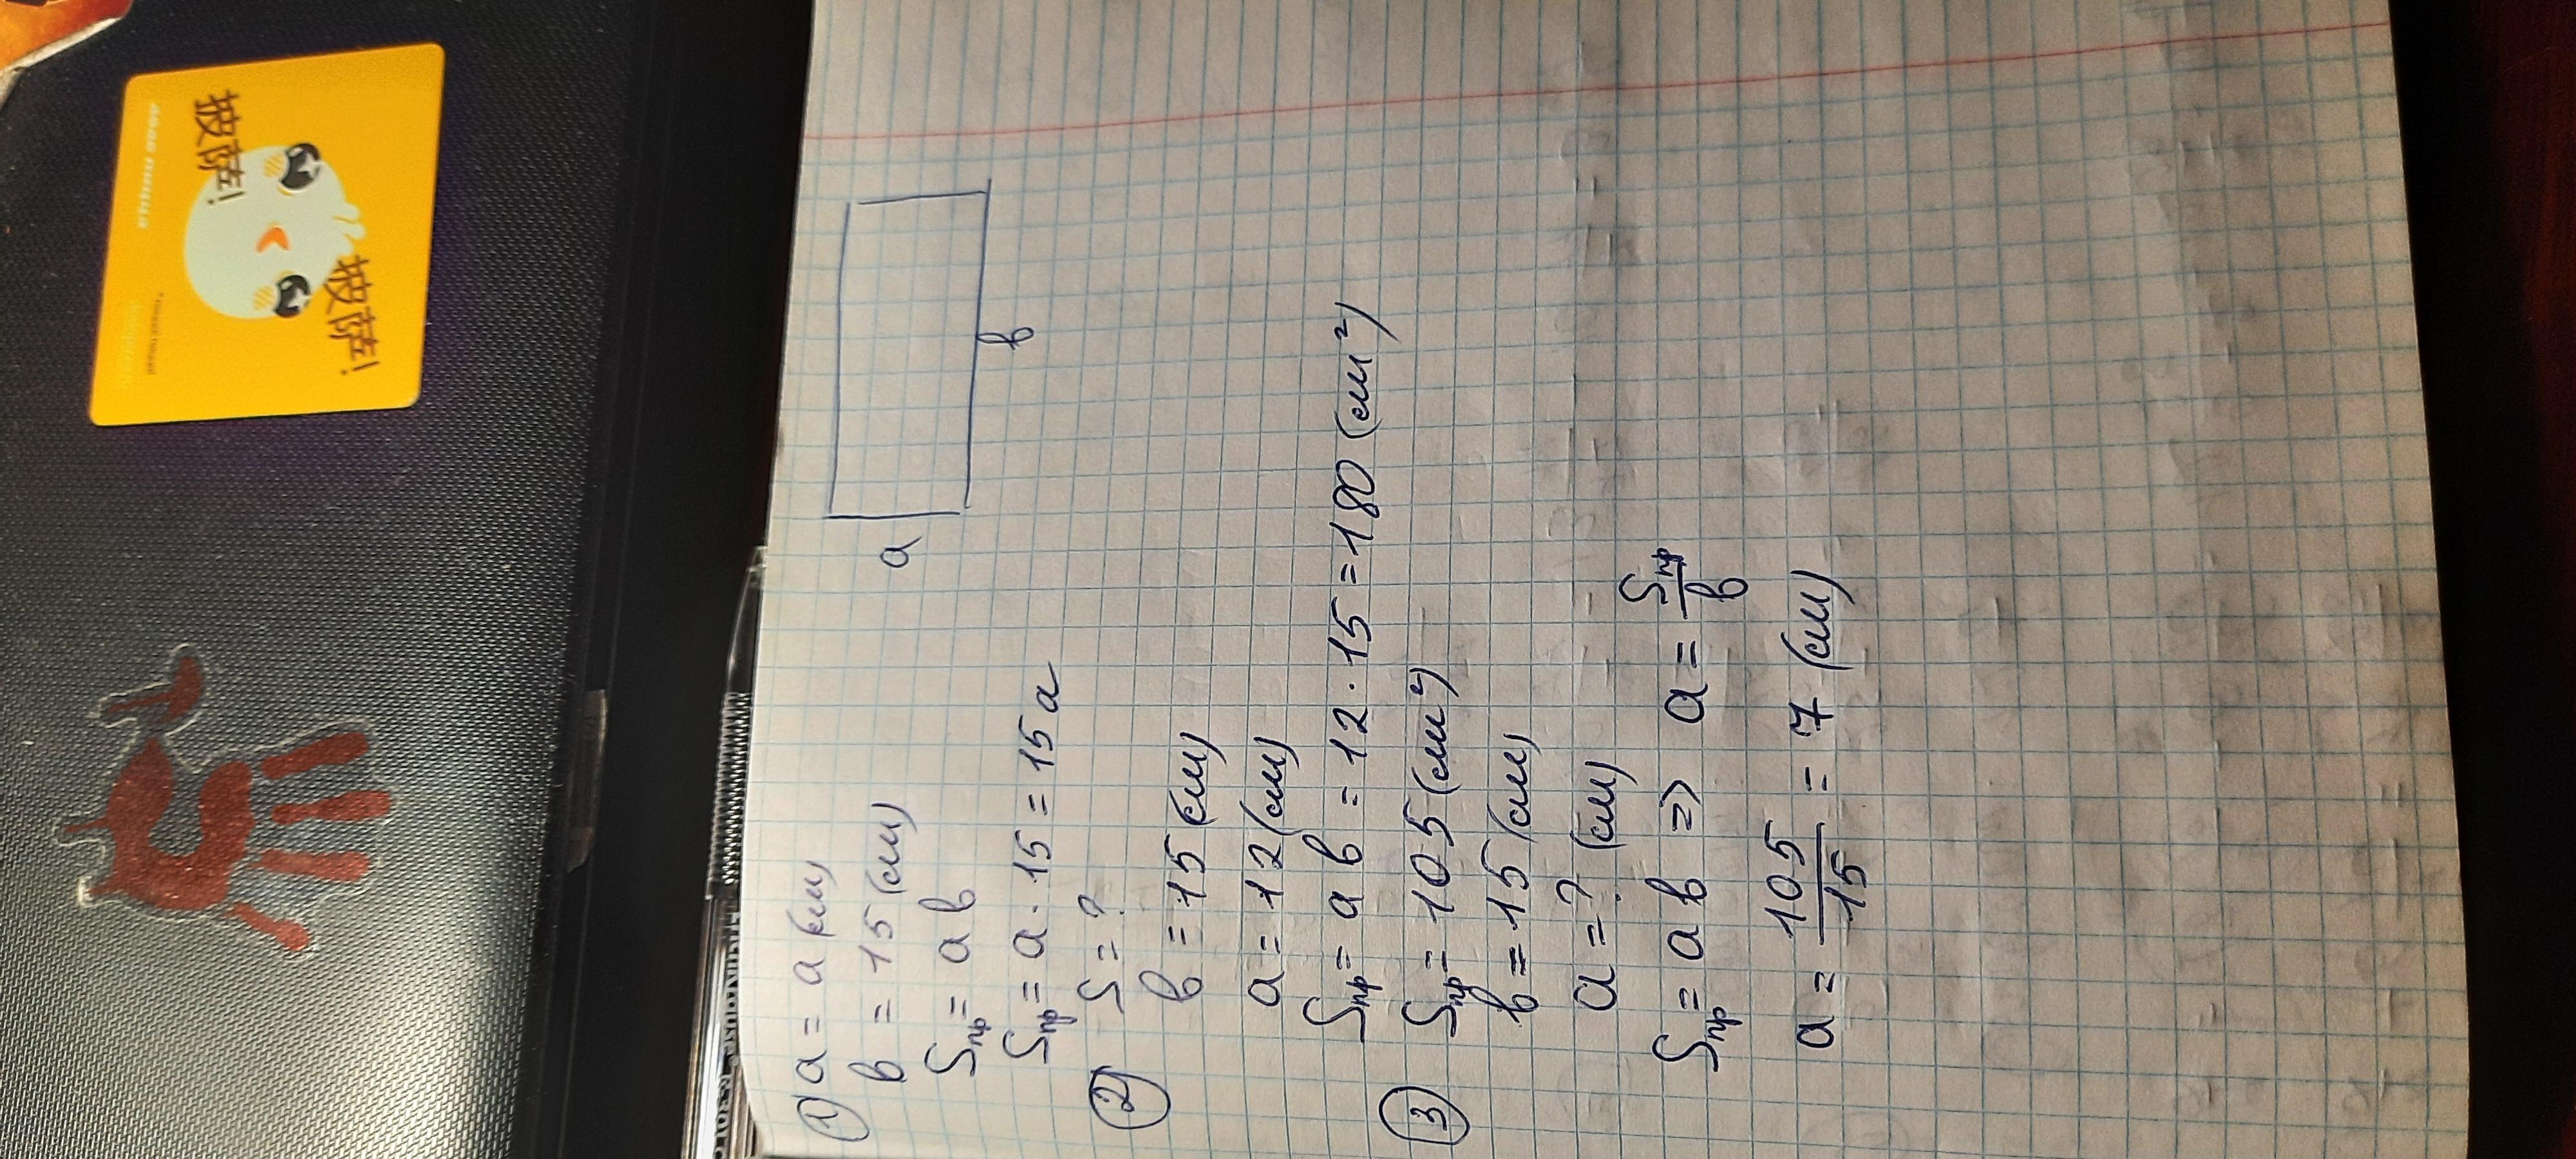 披萨!
披萨!
a
b
① a = a (см)
b = 15 (см)
Sпр = a b
Sпр = a · 15 = 15 a
② S = ?
b = 15 (см)
a = 12 (см)
Sпр = a b = 12 · 15 = 180 (см²)
③ Sпр = 105 (см²)
b = 15 (см)
a = ? (см)
Sпр = a b => a = Sпр/b
a = 105/15 = 7 (см)